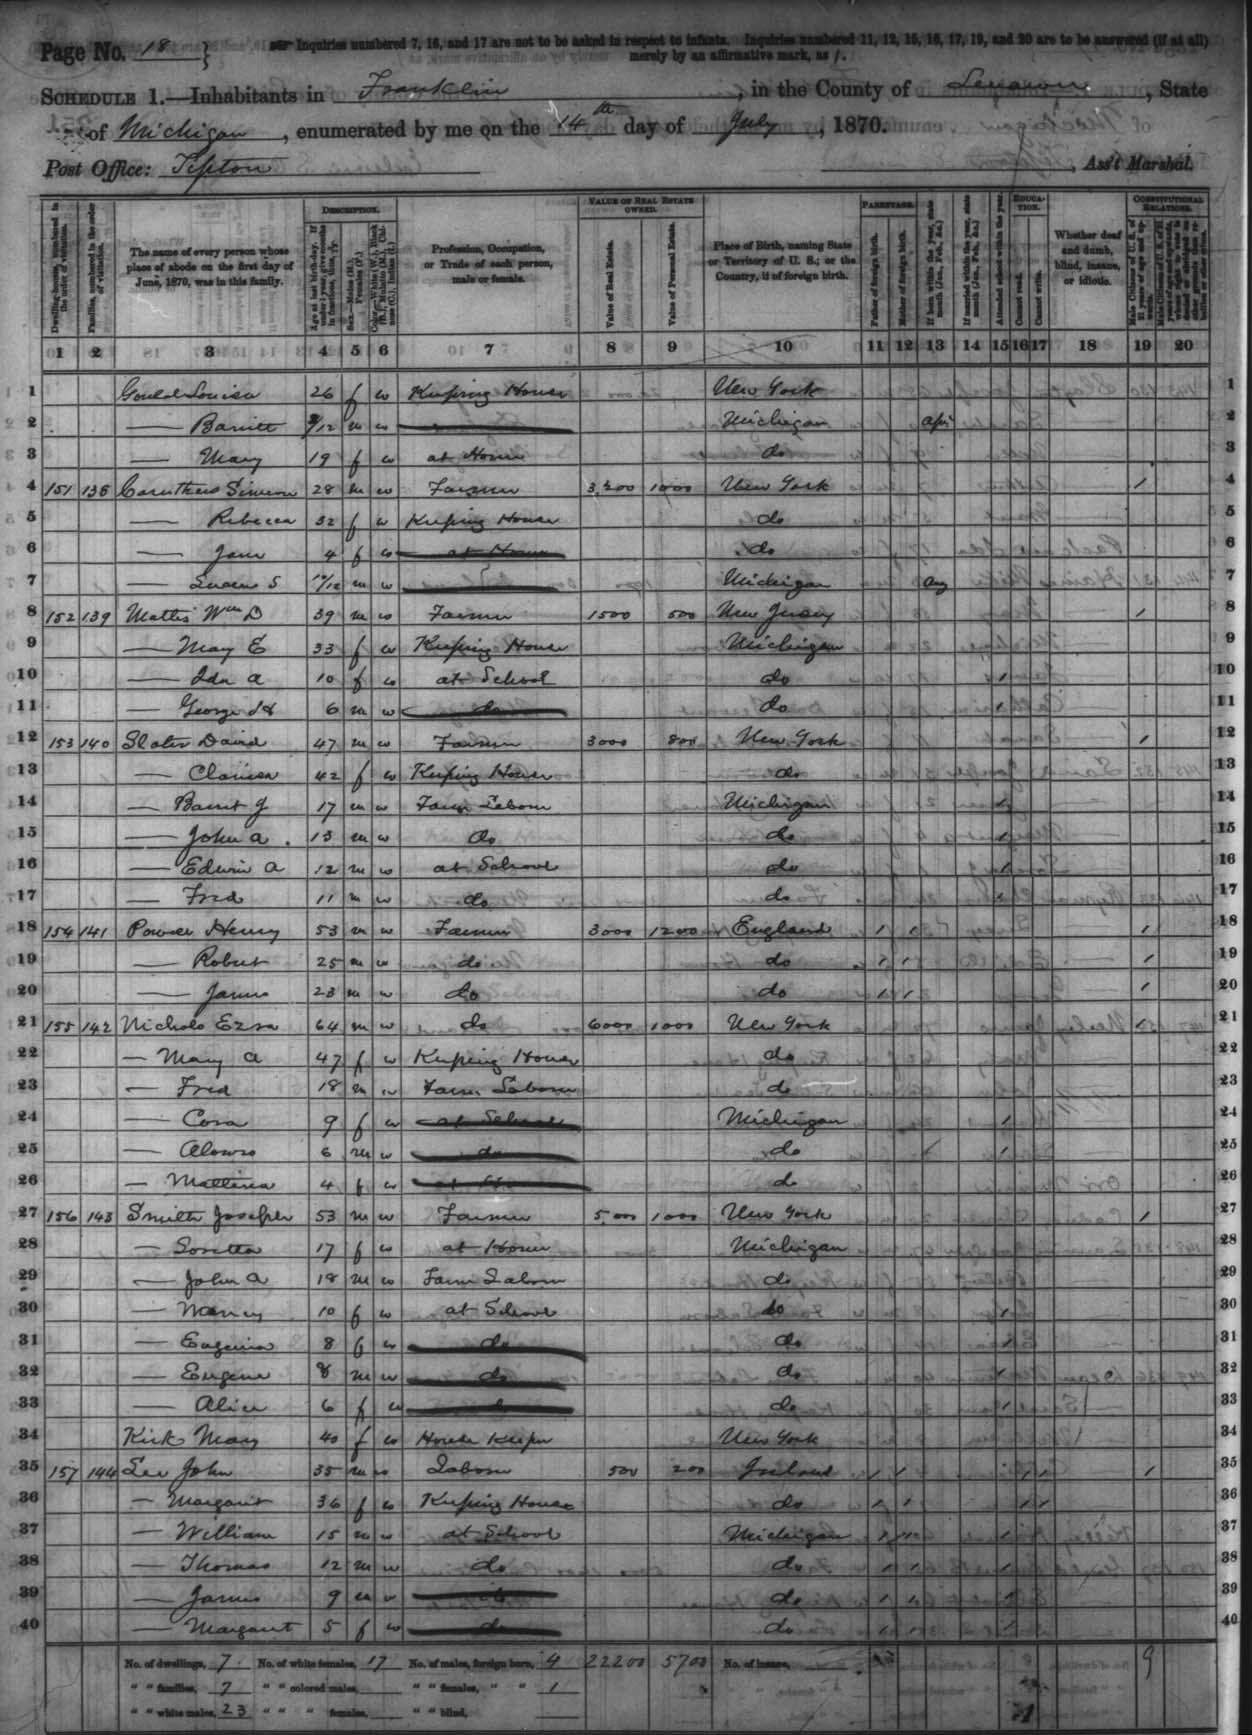 Page No. 18 } Inquiries numbered 7, 16, and 17 are not to be asked in respect to infants. Inquiries numbered 11, 12, 15, 16, 17, 19, and 20 are to be answered (if at all)
merely by an affirmative mark, as /.
SCHEDULE 1.—Inhabitants in Franklin, in the County of Lenawee, State
of Michigan, enumerated by me on the 14th day of July, 1870.
Post Office: Tipton , Ass't Marshal.
DESCRIPTION. VALUE OF REAL ESTATE OWNED. PARENTAGE. EDUCATION. CONSTITUTIONAL RELATIONS.
Dwelling-houses, numbered in the order of visitation.
Families, numbered in the order of visitation.
The name of every person whose place of abode on the first day of June, 1870, was in this family.
Sex.—Males (M.), Females (F.)
Profession, Occupation, or Trade of each person, male or female.
Value of Real Estate.
Value of Personal Estate.
Place of Birth, naming State or Territory of U. S.; or the Country, if of foreign birth.
Father of foreign birth.
Mother of foreign birth.
If born within the year, state month (Jan., Feb., &c.)
If married within the year, state month (Jan., Feb., &c.)
Attended school within the year.
Cannot read.
Cannot write.
Whether deaf and dumb, blind, insane, or idiotic.
1 2 3 4 5 6 7 8 9 10 11 12 13 14 15 16 17 18 19 20
1 Gould Louisa 26 f w Keeping House New York 1
2 — Barritt /12 m w Michigan Apr 2
3 — Mary 19 f w at Home do 3
4 151 Caruthers Simeon 28 m w Farmer 3,200 1000 New York / 4
5 — Rebecca 32 f w Keeping House do 5
6 — Jane 4 f w at Home do 6
7 — S /12 m w Michigan Aug 7
8 152 139 Wm D 39 m w Farmer 1500 500 New Jersey / 8
9 — Mary E 33 f w Keeping House Michigan 9
10 — Ida A 10 f w at School do / 10
11 — George 6 m w do do / 11
12 153 140 Slater David 47 m w Farmer 3000 800 New York / 12
13 — Clarissa 42 f w Keeping House do 13
14 — Barnt J 17 m w Farm Laborer Michigan / 14
15 — John A. 13 m w do do / 15
16 — Edwin A 12 m w at School do / 16
17 — Fred 11 m w do do / 17
18 154 141 Henry 53 m w Farmer 3000 1200 England / / / 18
19 — Robert 25 m w do do / / / 19
20 — James 23 m w do do / / / 20
21 155 142 Nichols Ezra 64 m w do 6000 1000 New York / 21
22 — Mary A 47 f w Keeping House do 22
23 — Fred 18 m w Farm Laborer do 23
24 — Cora 9 f w at School Michigan / 24
25 — Alonzo 6 m w do do / 25
26 — 4 f w do 26
27 156 143 Smith Joseph 53 m w Farmer 5,000 1000 New York / 27
28 — Loretta 17 f w at Home Michigan 28
29 — John A 18 m w Farm Laborer do 29
30 — Nancy 10 f w at School do / 30
31 — Eugenia 8 f w do do / 31
32 — Eugene 8 m w do do / 32
33 — Alice 6 f w do / 33
34 Kirk Mary 40 f w House Keeper New York 34
35 157 144 Lee John 35 m w Laborer 500 200 Ireland / / / / / 35
36 — Margaret 36 f w Keeping House do / / / / 36
37 — William 15 m w at School Michigan / / / 37
38 — Thomas 12 m w do do / / / 38
39 — James 9 m w do do / / / 39
40 — Margaret 5 f w do do / / / 40
No. of dwellings, 7 No. of white females, 17 No. of males, foreign born, 4 22200 5700 No. of insane, 9
" " families, 7 " " colored males, " " females, " " 1
" " white males, 23 " " " females, " " blind,